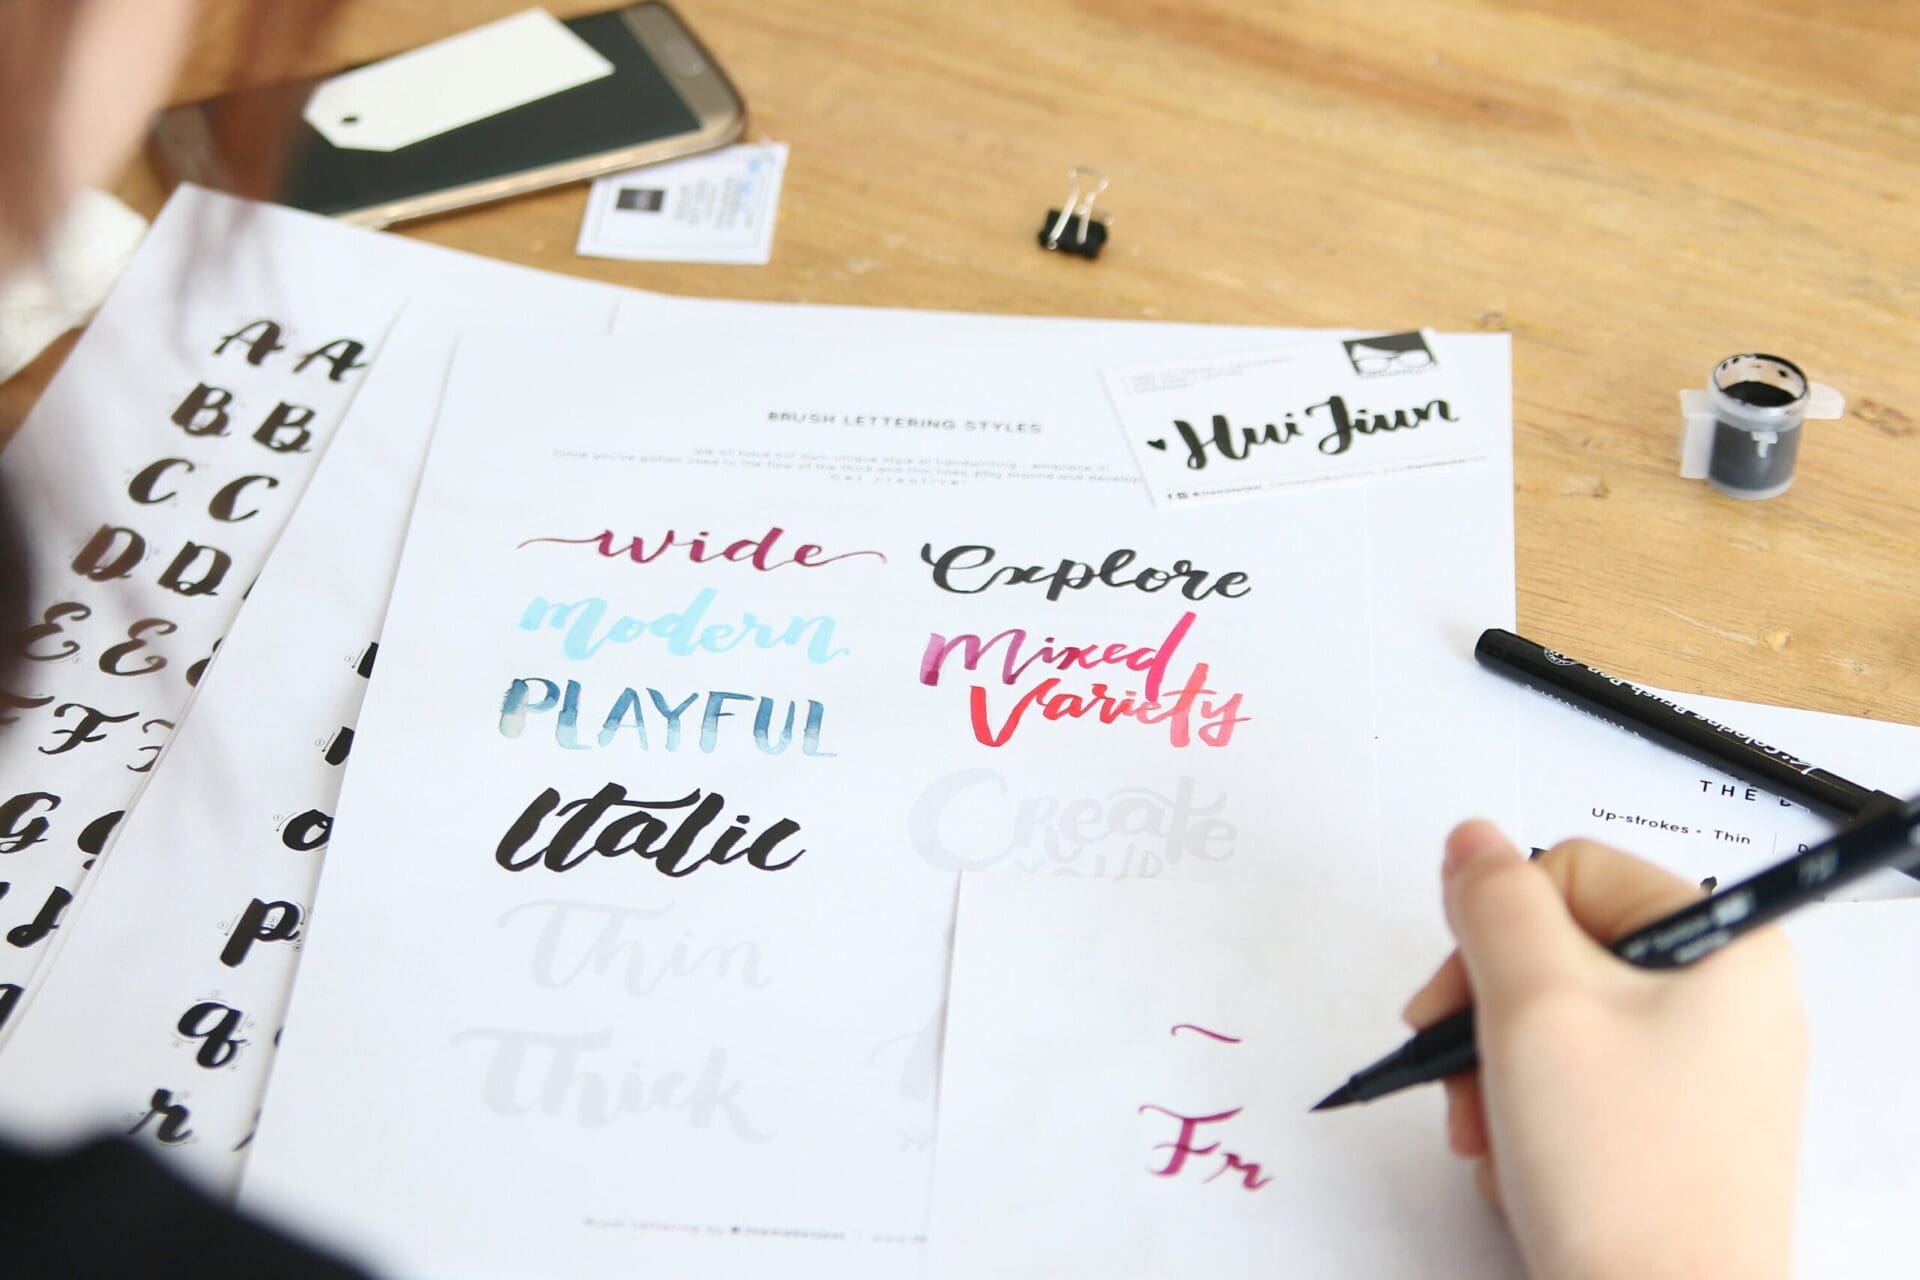 BRUSH LETTERING STYLES
We all have our own unique style of handwriting - embrace it!
Once you've gotten used to the flow of the thick and thin lines, play around and develop
Get creative!
Hui Jiun
wide
Explore
Modern
Mixed
Variety
PLAYFUL
Italic
Create
YOUR
Thin
Thick
Brush Lettering by
A A
B B
C C
D D
E E
F
G
o
p
q
r
THE
Up-strokes - Thin
Fr